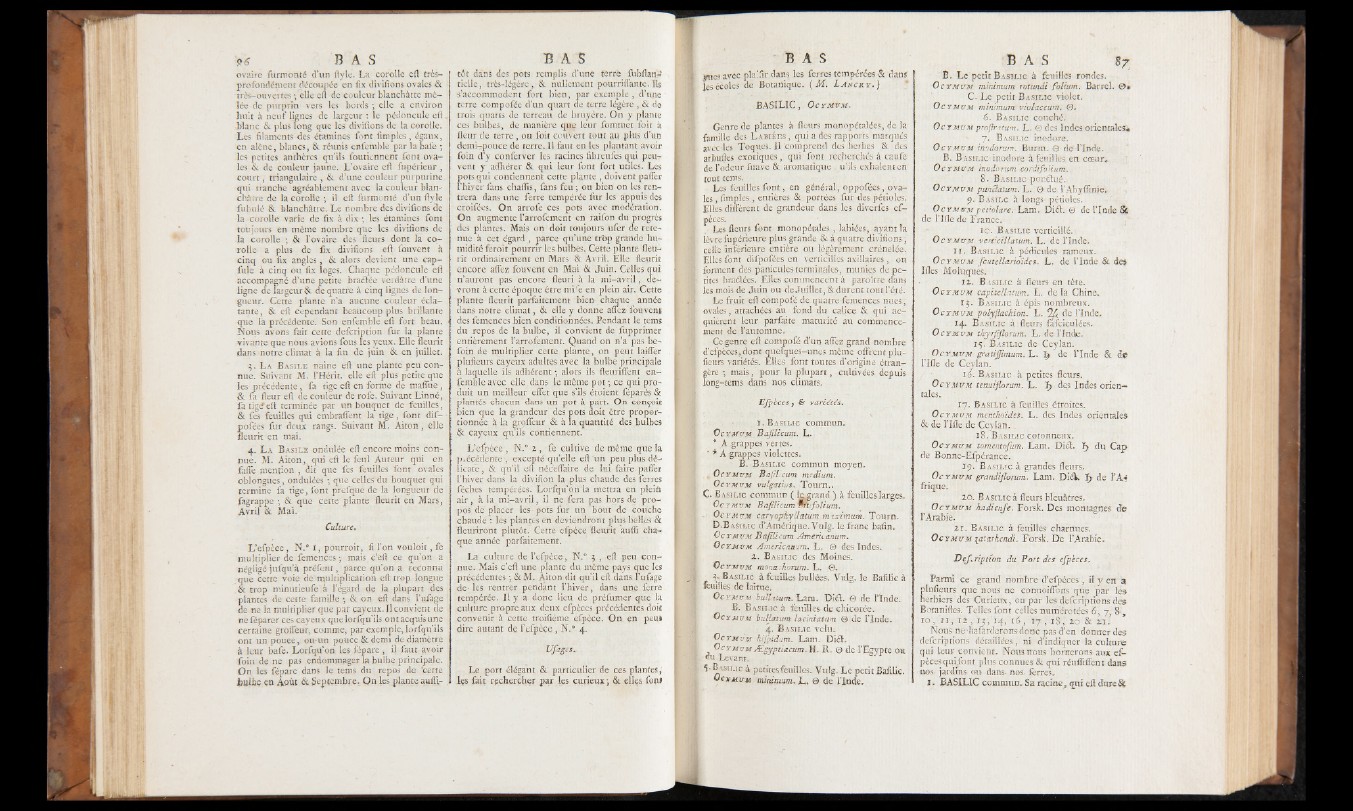 96 B A S
ovaire surmonté d'un style. La corolle est très-
profondément découpée en six divisions ovales &
très-ouvertes ; elle est de couleur blanchâtre mê-
lée de purpin vers les bords ; elle a environ
huit à neuf lignes de largeur : le pédoncule est
blanc & plus long que les divisions de la corolle.
Les filaments des étamines sont simples, égaux,
en alêne, blancs, & réunis ensemble par la base ;
les petites anthères qu'ils soutiennent sont ova-
les & de couleur jaune. L'ovaire est supérieur,
court, triangulaire, & d'une couleur purpurine
qui tranche agréablement avec la couleur blan-
châtre de la corolle ; il est surmonté d'un style
subulé & blanchâtre. Le nombre des divisions de
la corolle varie de six à dix ; les étamines sont
toujours en même nombre que les divisions de
la corolle ; & l'ovaire des fleurs dont la co-
rolle a plus de six divisions est souvent à
cinq ou six angles, & alors devient une cap-
sule à cinq ou six loges. Chaque pédoncule est
accompagné d'une petite bractée verdâtre d'une
ligne de largeur & de quatre à cinq lignes de lon-
gueur. Cette plante n'a aucune couleur écla-
tante, & est cependant beaucoup plus brillante
que la précédente. Son ensemble est fort beau.
Nous avons fait cette description sur la plante
vivante que nous avions sous les yeux. Elle fleurit
dans notre climat à la fin de juin & en juillet.
3. LA BASILE naine est une plante peu con-
nue. Suivant M. l'Hérit. elle est plus petite que
les précédente, sa tige est en forme de massue,
& sa fleur est de couleur de rose. Suivant Linné,
sa tige est terminée par un bouquet de feuilles,
& ses feuilles qui embrassent la tige, sont dis-
posées sur deux rangs. Suivant M. Aiton, elle
fleurit en mai.
4. LA BASILE ondulée est encore moins con-
nue. M. Aiton, qui est le seul Auteur qui en
fasse mention, dit que ses feuilles sont ovales
oblongues, ondulées ; que celles du bouquet qui
termine sa tige, sont presque de la longueur de
sa grappe ; & que cette plante fleurit en Mars,
Avril & Mai.
Culture.
L'espèce, N.° 1, pourroit, si l'on vouloit, se
multiplier de semences ; mais c'est ce qu'on a
négligé jusqu'à présent, parce qu'on a reconnu
que cette voie de multiplication est trop longue
& trop minutieuse à l'égard de la plupart des
plantes de cette famille ; & on est dans l'usage
de ne la multiplier que par cayeux. Il convient de
ne séparer ces cayeux que lorsqu'ils ont acquis une
certaine grosseur, comme, par exemple, lorsqu'ils
ont un pouce, ou un pouce & demi de diamètre
à leur base. Lorsqu'on les sépare, il faut avoir
soin de ne pas endommager la bulbe principale.
On les sépare dans le tems du repos de cette
bulbe en Août & Septembre. On les plante aussi-
B A S
tôt dans des pots remplis d'une terre substan-
tielle, très-légère, & nullement pourrissante. Ils
s'accommodent fort bien, par exemple, d'une
terre composée d'un quart de terre légère, & de
trois quarts de terreau de bruyère. On y plante
ces bulbes, de manière que leur sommet soit à
fleur de terre, ou soit couvert tout au plus d'un
demi-pouce de terre. Il faut en les plantant avoir
soin d'y conserver les racines fibreuses qui peu-
vent y adhérer & qui leur sont fort utiles. Les
pots qui contiennent cette plante, doivent passer
l'hiver sans chassis, sans feu ; ou bien on les ren-
trera dans une serre tempérée sur les appuis des
croisées. On arrose ces pots avec modération.
On augmente l'arrosement en raison du progrès
des plantes. Mais on doit toujours user de rete-
nue à cet égard, parce qu'une trop grande hu-
midité feroit pourrir les bulbes. Cette plante fleu-
rit ordinairement en Mars & Avril. Elle fleurit
encore assez souvent en Mai & Juin. Celles qui
n'auront pas encore fleuri à la mi-avril, de-
vront à cette époque être mise en plein air. Cette
plante fleurit parfaitement bien chaque année
dans notre climat, & elle y donne assez souvent
des semences bien conditionnées. Pendant le tems
du repos de la bulbe, il convient de supprimer
entièrement l'arrosement. Quand on n'a pas be-
soin de multiplier cette plante, on peut laisser
plusieurs cayeux adultes avec la bulbe principale
à laquelle ils adhérent ; alors ils fleurissent en-
semble avec elle dans le même pot ; ce qui pro-
duit un meilleur effet que s'ils étoient séparés &
plantés chacun dans un pot à part. On conçoit
bien que la grandeur des pots doit être propor-
tionnée à la grosseur & à la quantité des bulbes
& cayeux qu'ils contiennent.
L'espèce, N.° 2, se cultive de même que la
précédente, excepté qu'elle est un peu plus dé-
licate, & qu'il est nécessaire de lui faire passer
l'hiver dans la division la plus chaude des serres
sèches tempérées. Lorsqu'on la mettra en plein
air, à la mi-avril, il ne sera pas hors de pro-
pos de placer les pots sur un bout de couche
chaude : les plantes en deviendront plus belles &
fleuriront plutôt. Cette espèce fleurit aussi cha-
que année parfaitement.
La culture de l'espèce, N.° 3, est peu con-
nue. Mais c'est une plante du même pays que les
précédentes ; & M. Aiton dit qu'il est dans l'usage
de les rentrer pendant l'hiver, dans une serre
tempérée. Il y a donc lieu de présumer que la
culture propre aux deux espèces précédentes doit
convenir à cette troisième espèce. On en peut
dire autant de l'espèce, N.° 4.
Usages.
Le port élégant & particulier de ces plantes,
les fait rechercher par les curieux ; & elles sont
B A S
avec plaisir dans les serres tempérées & dans
les écoles de Botanique. ( M. LANCRY. )
BASILIC, OCYMUM.
Genre de plantes à fleurs monopétalées, de la
famille des LABIÉES, qui a des rapports marqués
avec les Toques. Il comprend des herbes & des
arbustes exotiques, qui sont recherchés à cause
de l'odeur suave & aromatique qu'ils exhalent en
tout tems.
Les feuilles sont, en général, opposées, ova-
les, simples, entières & portées sur des pétioles.
Elles diffèrent de grandeur dans les diverses es-
pèces.
Les fleurs sont monopétales, labiées, ayant la
lèvre supérieure plus grande & à quatre divisions,
celle inférieure entière ou légèrement crénelée.
Elles sont disposées en verticilles axillaires, ou
forment des panicules terminales, munies de pe-
tites bractées. Elles commencent à paroître dans
les mois de Juin ou de Juillet, & durent tout l'été.
Le fruit est composé de quatre semences nues,
ovales, attachées au fond du calice & qui ac-
quièrent leur parfaite maturité au commence-
ment de l'automne.
Ce genre est composé d'un assez grand nombre
d'espèces, dont quelques-unes même offrent plu-
sieurs variétés. Elles sont toutes d'origine étran-
gère ; mais, pour la plupart, cultivées depuis
long-tems dans nos climats.
Espèces, & variétés.
1. BASILIC commun.
OCYMUM Basilicum. L.
* A grappes vertes.
* * A grappes violettes.
B. BASILIC commun moyen.
OCYMUM Basilicum medium.
OCYMUM vulgatius. Tourn.
C. BASILIC commun ( le grand ) à feuilles larges.
OCYMUM Basilicum latifolium.
OCYMUM caryophyllatum maximum. Tourn.
D. BASILIC d'Amérique. Vulg. le franc basin.
OCYMUM Basilicum Americanum.
OCYMUM Americanum. L. ☉ des Indes.
2. BASILIC des Moines.
OCYMUM monachorum. L. ☉.
3. BASILIC à feuilles bullées. Vulg. le Basilic à
feuilles de laitue.
OCYMUM bullatum. Lam. Dict. ☉ de l'Inde.
B. BASILIC à feuilles de chicorée.
OCYMUM bullatum laciniatum ☉ de l'Inde.
4. BASILIC velu.
OCYMUM hispidum. Lam. Dict.
OCYMUM Ægyptiacum. H. R. ☉ de l'Egypte ou
du Levant.
5. BASILIC à petites feuilles. Vulg. Le petit Basilic.
OCYMUM minimum. L. ☉ de l'Inde.
B A S 87
B. Le petit BASILIC à feuilles rondes.
OCYMUM minimum rotundi folium. Barrel. ☉.
C. Le petit BASILIC violet.
OCYMUM minimum violaceum. ☉.
6. BASILIC couché.
OCYMUM prostratum. L. ☉ des Indes orientales.
7. BASILIC inodore.
OCYMUM inodorum. Burm. ☉ de l'Inde.
B. BASILIC inodore à feuilles en cœur.
OCYMUM inodorum cordifolium.
8. BASILIC ponctué.
OCYMUM punctatum. L. ☉ de l'Abyssinie.
9. BASILC à longs pétioles.
OCYMUM petiolare. Lam. Dict. ☉ de l'Inde &
de l'Isle de France.
10. BASILIC verticillé.
OCYMUM verticillatum. L. de l'Inde.
11. BASILIC à pédicules rameux.
OCYMUM scutellarioïdes. L. de l'Inde & des
Isles Moluques.
12. BASILIC à fleurs en tête.
OCYMUM capitellatum. L. de la Chine.
13. BASILIC à épis nombreux.
OCYMUM polystachion. L. ♃ de l'Inde.
14. BASILIC à fleurs fasciculées.
OCYMUM thyrsiflorum. L. de l'Inde.
15. BASILIC de Ceylan.
OCYMUM gratissimum. L. ♄ de l'Inde & de
l'Isle de Ceylan.
16. BASILIC à petites fleurs.
OCYMUM tenuiflorum. L. ♄ des Indes orien-
tales.
17. BASILIC à feuilles étroites.
OCYMUM menthoïdes. L. des Indes orientales
& de l'Isle de Ceylan.
18. BASILIC cotonneux.
OCYMUM tomentosum. Lam. Dict. ♄ du Cap
de Bonne-Espérance.
19. BASILIC à grandes fleurs.
OCYMUM grandiflorum. Lam. Dict. ♄ de l'A-
frique.
20. BASILIC à fleurs bleuâtres.
OCYMUM hadiense. Forsk. Des montagnes de
l'Arabie.
21. BASILIC à feuilles charnues.
OCYMUM zatarhendi. Forsk. De l'Arabie.
Description du Port des espèces.
Parmi ce grand nombre d'espèces, il y en a
plusieurs que nous ne connoissons que par les
herbiers des Curieux, ou par les descriptions des
Botanistes. Telles sont celles numérotées 6, 7, 8,
10, 11, 12, 13, 14, 16, 17, 18, 20 & 21.
Nous ne hasarderons donc pas d'en donner des
descriptions détaillées, ni d'indiquer la culture
qui leur convient. Nous nous bornerons aux es-
pèces qui sont plus connues & qui réussissent dans
nos jardins ou dans nos serres.
1. BASILIC commun. Sa racine, qui est dure &